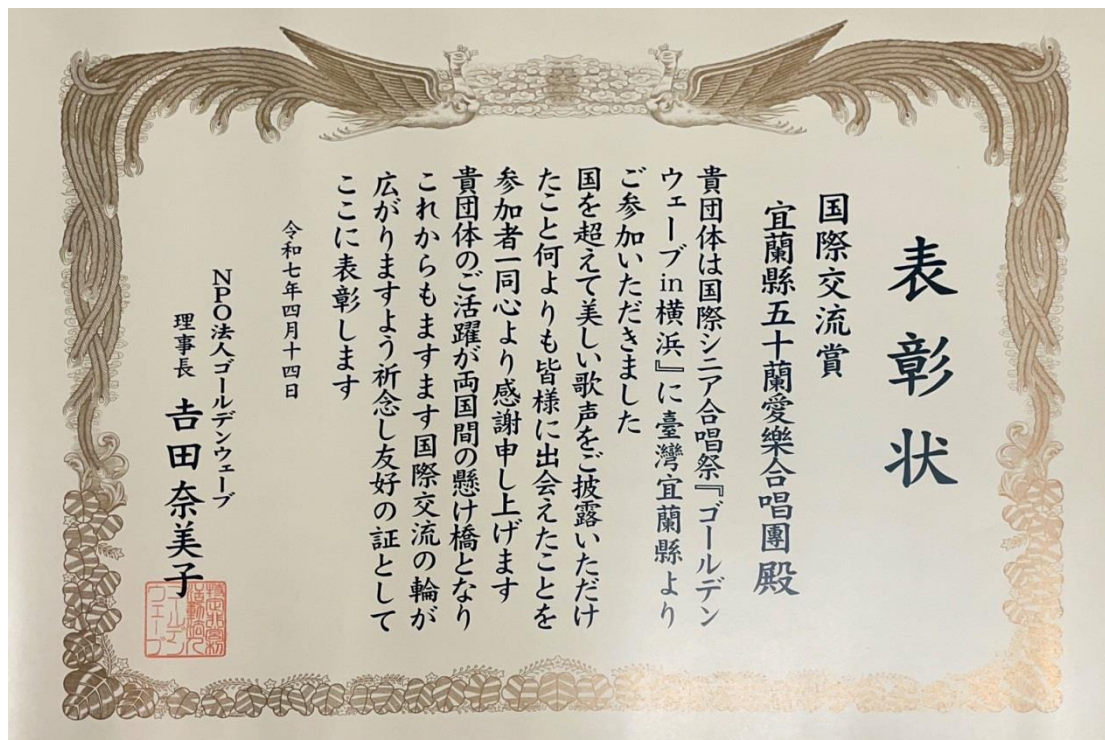 表彰状
国際交流賞
宜蘭縣五十蘭愛樂合唱團殿
貴団体は国際シニア合唱祭『ゴールデン
ウェーブin横浜』に臺灣宜蘭縣より
ご参加いただきました
国を超えて美しい歌声をご披露いただけ
たこと何よりも皆様に出会えたことを
参加者一同心より感謝申し上げます
貴団体のご活躍が両国間の懸け橋となり
これからもますます国際交流の輪が
広がりますよう祈念し友好の証として
ここに表彰します
令和七年四月十四日
NPO法人ゴールデンウェーブ
理事長 𠮷田奈美子
特定非営利
活動法人
ゴールデン
ウェーブ